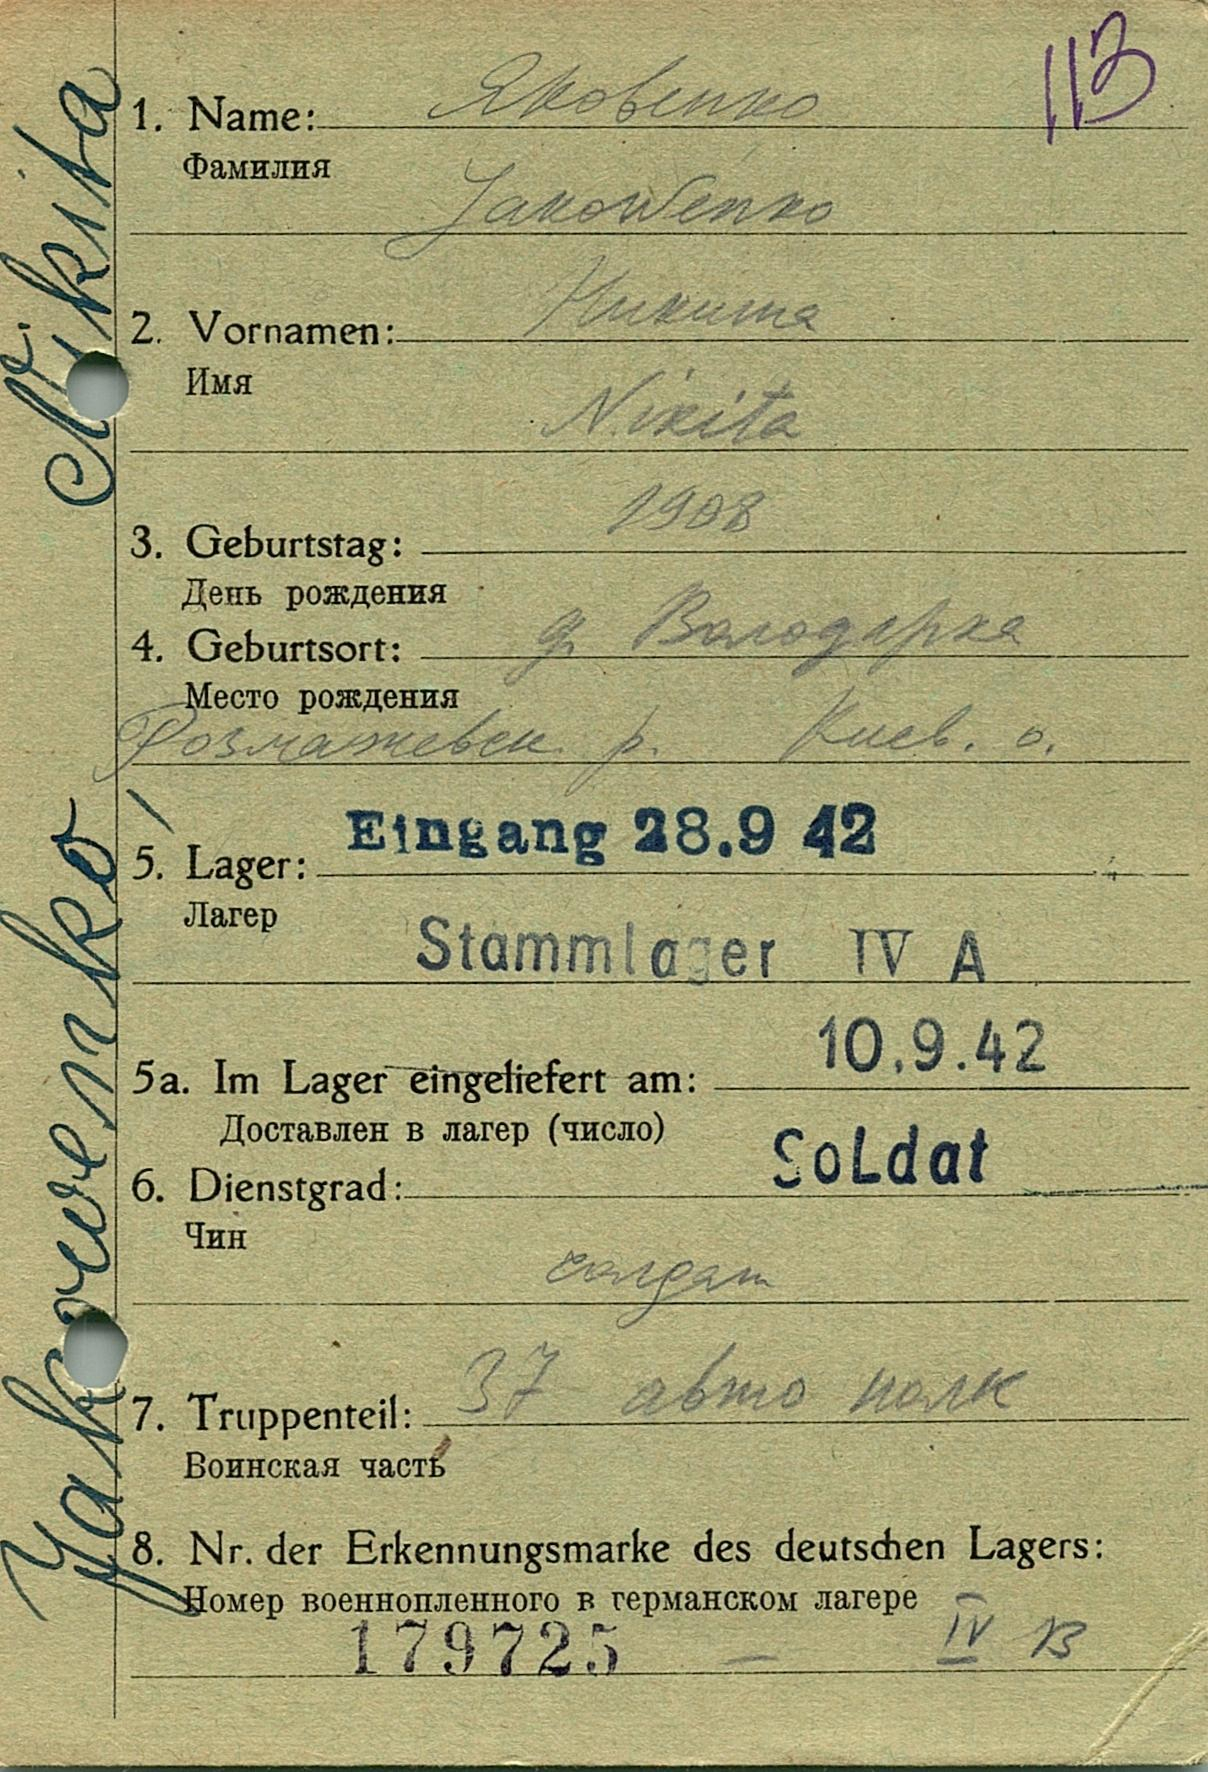 113
1. Name: Яковенко
Фамилия
Jakowenko
2. Vornamen: Никита
Имя
Nikita
3. Geburtstag: 1908
День рождения
4. Geburtsort: д. Володарка
Место рождения
Розважевск. р. Киев. о.
Eingang 28.9 42
5. Lager:
Лагер
Stammlager IV A
5a. Im Lager eingeliefert am: 10.9.42
Доставлен в лагер (число)
6. Dienstgrad: SoLdat
Чин
солдат
7. Truppenteil: 37 авто полк
Воинская часть
8. Nr. der Erkennungsmarke des deutschen Lagers:
Номер военнопленного в германском лагере
179725 — IV B
Jakowenko, Nikita